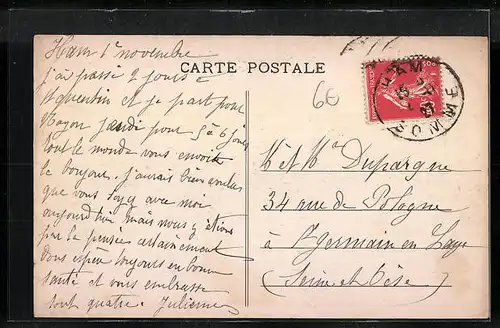 Ham 1er novembre
j'ai passé 2 jours à
St quentin et je part pour
Noyon jeudi pour 5 à 6 jours
tout le monde vous envoie
le bonjour. j'aurais bien voulu
que vous soyez avec moi
aujourd'hui mais nous y étions
par la pensée certainement
Vous espere toujours en bonne
santé et vous embrasse
tout quatre. Julienne
CARTE POSTALE
66
HAM
SOMME
Mr et Me Dupargne
34 rue de Pologne
à St Germain en Laye
(Seine et Oise)